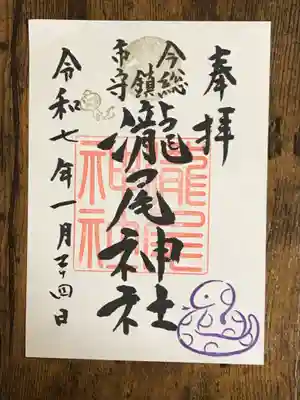 奉拝
今市総鎮守
瀧尾神社
令和七年一月二十四日
瀧尾神社